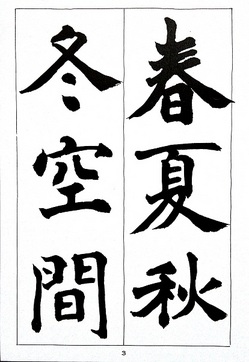 春夏秋
冬空間
3